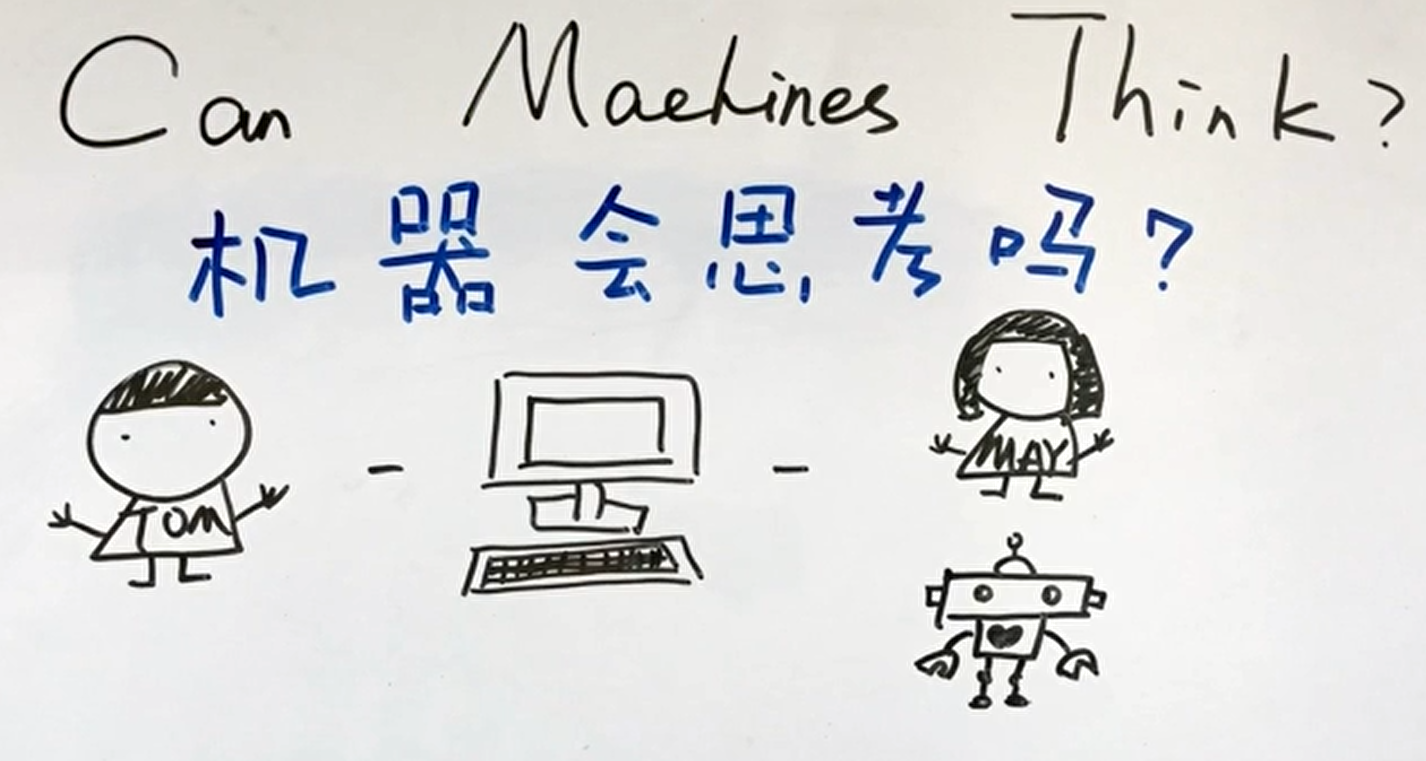 Can Machines Think?
机器会思考吗?
TOM
MAY